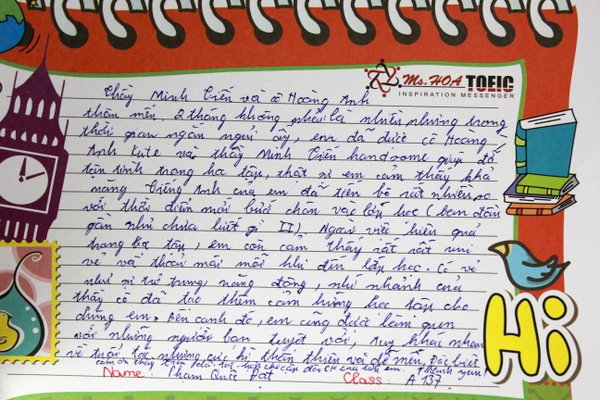 Ms. HOA TOEIC
INSPIRATION MESSENGER
Thầy Minh Tiến và cô Hoàng Anh
thân mến, 2 tháng không phải là nhiều nhưng trong
thời gian ngắn ngủi ấy, em đã được cô Hoàng
Anh kute và thầy Minh Tiến handsome giúp đỡ
tận tình trong học tập, thật sự em cảm thấy khả
năng Tiếng Anh của em đã tiến bộ rất nhiều so
với thời điểm mới bước chân vào lớp học (ban đầu
gần như chưa biết gì II). Ngoài việc hiệu quả
trong học tập, em còn cảm thấy rất rất vui
vẻ và thoải mái mỗi khi đến lớp học. Có vẻ
như sự trẻ trung, năng động, nhí nhảnh của
thầy cô đã tạo thêm cảm hứng học tập cho
chúng em. Bên cạnh đó, em cũng được làm quen
với những người bạn tuyệt vời, tuy khác nhau
về tuổi tác nhưng cực kì thân thiện và dễ mến. Đặc biệt
cảm ơn thầy Tiến đã
Name: Phạm Quốc Đạt Class: A137
Hi